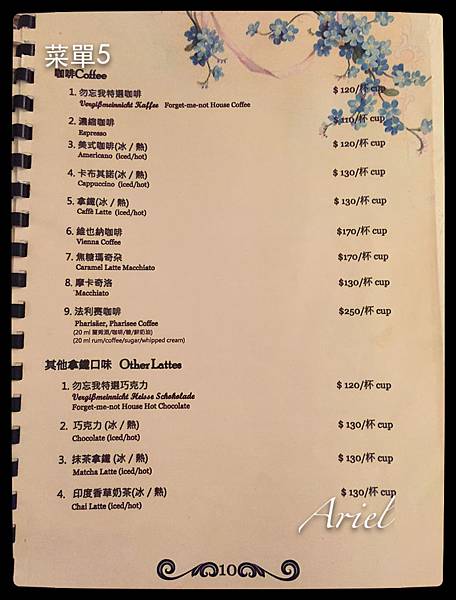 菜單5
咖啡Coffee
1. 勿忘我特選咖啡 $ 120/杯 cup
Vergißmeinnicht Kaffee Forget-me-not House Coffee
2. 濃縮咖啡 $ 110/杯 cup
Espresso
3. 美式咖啡(冰 / 熱) $ 120/杯 cup
Americano (iced/hot)
4. 卡布其諾(冰 / 熱) $ 130/杯 cup
Cappuccino (iced/hot)
5. 拿鐵(冰 / 熱) $ 130/杯 cup
Caffè Latte (iced/hot)
6. 維也納咖啡 $170/杯 cup
Vienna Coffee
7. 焦糖瑪奇朵 $170/杯 cup
Caramel Latte Macchiato
8. 摩卡奇洛 $130/杯 cup
Macchiato
9. 法利賽咖啡 $250/杯 cup
Pharisäer, Pharisee Coffee
(20 ml 蘭姆酒/咖啡/糖/鮮奶油)
(20 ml rum/coffee/sugar/whipped cream)
其他拿鐵口味 Other Lattes
1. 勿忘我特選巧克力 $ 120/杯 cup
Vergißmeinnicht Heisse Schokolade
Forget-me-not House Hot Chocolate
2. 巧克力 (冰 / 熱) $ 130/杯 cup
Chocolate (iced/hot)
3. 抹茶拿鐵 (冰 / 熱) $ 130/杯 cup
Matcha Latte (iced/hot)
4. 印度香草奶茶(冰 / 熱) $ 130/杯 cup
Chai Latte (iced/hot)
Ariel
10